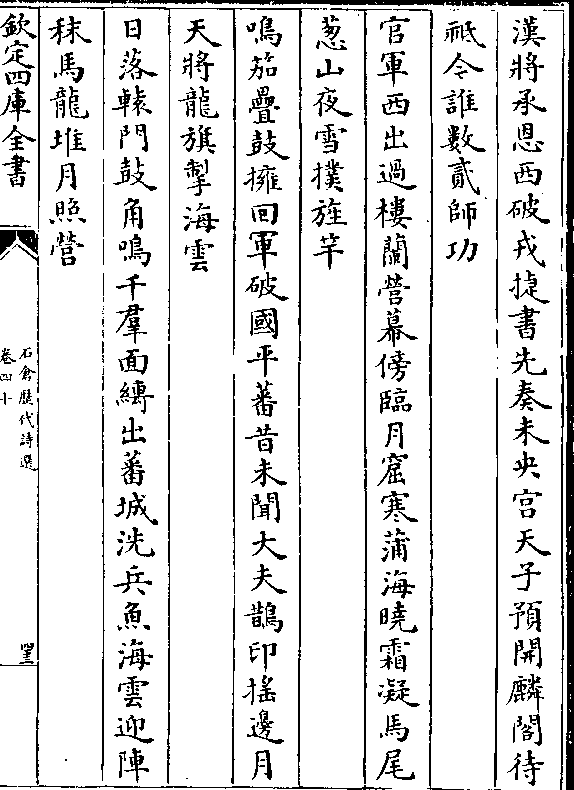 漢將承恩西破戎捷書先奏未央宫天子預開麟閣待
祗令誰數貳師功
官軍西出過樓蘭營幕傍臨月窟寒蒲海曉霜凝馬尾
葱山夜雪撲旌竿
鳴笳疊鼓擁回軍破國平蕃昔未聞大夫鵲印摇邊月
天將龍旗掣海雲
日落轅門鼓角鳴千羣面縛出蕃城洗兵魚海雲迎陣
秣馬龍堆月照營
欽定四庫全書
石倉歷代詩選
卷四十